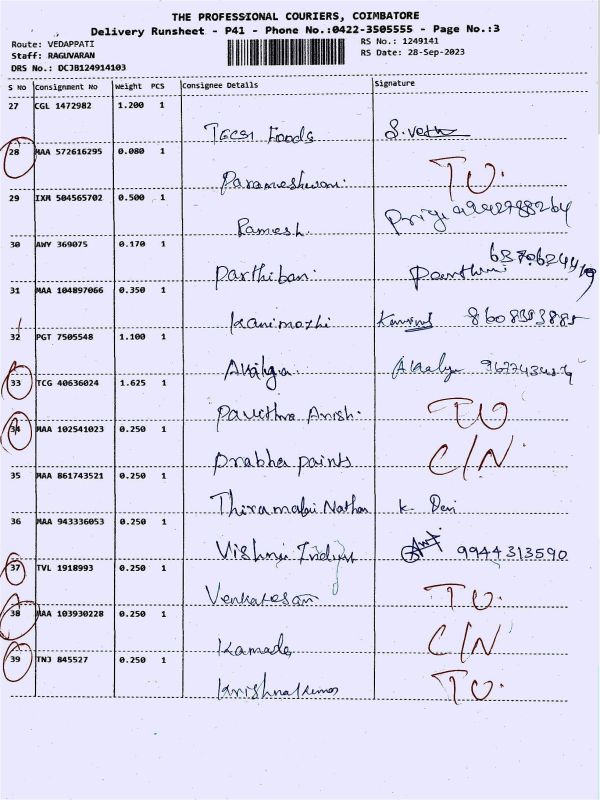 THE PROFESSIONAL COURIERS, COIMBATORE
Delivery Runsheet - P41 - Phone No.:0422-3505555 - Page No.:3
Route: VEDAPPATI
RS No.: 1249141
Staff: RAGUVARAN
RS Date: 28-Sep-2023
DRS No.: DCJB124914103
S No Consignment No Weight PCS Consignee Details Signature
27 CGL 1472982 1.200 1
Foods
28 MAA 572616295 0.080 1
Parameshwari T.O.
29 IXM 504565702 0.500 1
Ramesh Priya 9942788264
30 AWY 369075 0.170 1
Parthiban
31 MAA 104897066 0.350 1
Kanimozhi 8608393885
32 PGT 7505548 1.100 1
Akalya Akalya
33 TCG 40636024 1.625 1
Pavithra Anish. TO
34 MAA 102541023 0.250 1
Prabha paints C/N.
35 MAA 861743521 0.250 1
Nathan K. Devi
36 MAA 943336053 0.250 1
Vishnu 9944313590
37 TVL 1918993 0.250 1
Venkatesan T.O.
38 MAA 103930228 0.250 1
Kamada C/N
39 TNJ 845527 0.250 1
Krishnakumar T.O.